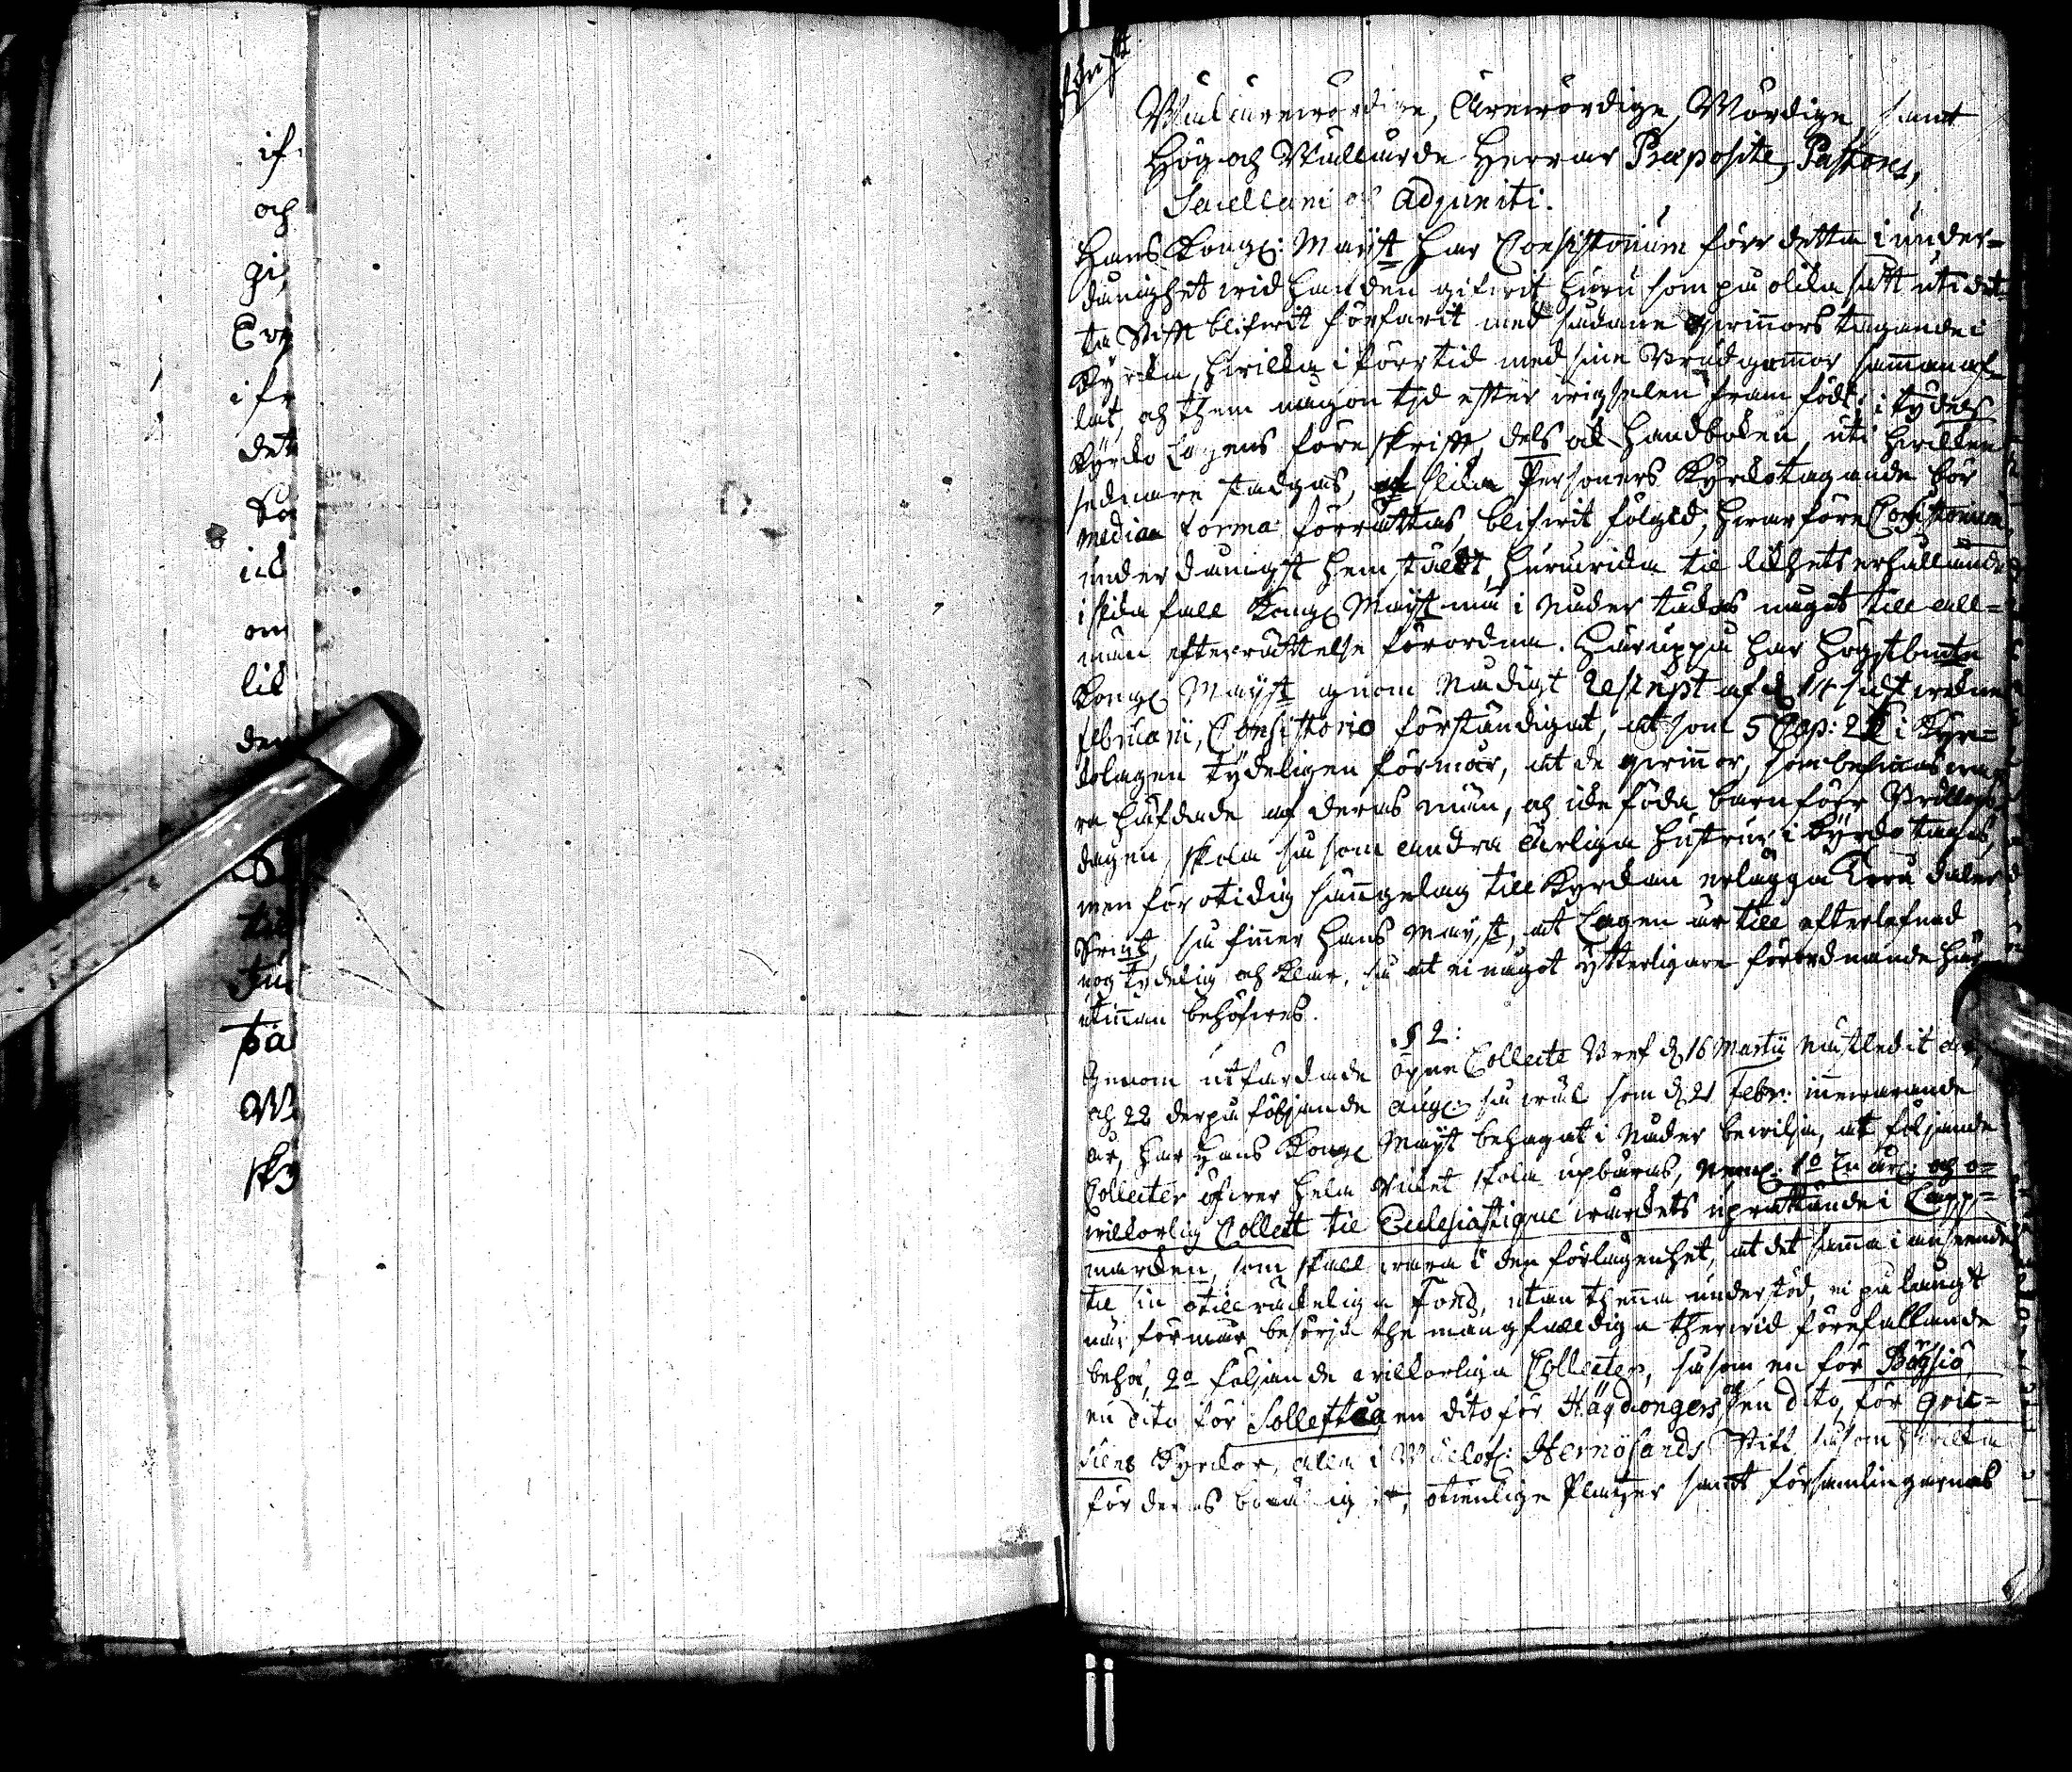 if
och
gi
Ev
ifr
det
So
uk
om
lik
den
S
til
tu
på
W
sky
Wälärewördige, Ärewördige, Wördige samt
Hög och Wällärde Herrar Præposite, Pastores,
Sacellani och Adjuncti.
Hans Kongl: Maij:st har Consistorium förr detta i under-
dånighet wid handen gifwit huru som på olika sätt uti det-
ta Stift blifwit förfarit med sådane qwinnors tagande i
Kyrka, hwilka i förtid med sine Brudgummor sammanaf-
lat, och them någon tid efter wigselen fram födt, i ty dels
Kyrko Lagens föreskrift, dels ock Handboken, uti hwilken
sednare stadgas, at slika Personers Kyrkotagande bör
media forma förrättas, blifwit fölgd, hwarföre Consistorium
underdånigst hemstäldt, huruwida til likhets erhållande
i slika fall Kongl Maij:st må i Nåder täckas något till all-
män efterrättelse förordna. Häruppå har Högstbemte
Kongl Maij:st genom Nådigt Rescript af d. 14 sidstwikne
Februarii, Consistorio förständigat, at som 5 Cap: 2 § i Kyr-
kolagen tydeligen förmår, at de qwinnor, som befinnas wa-
ra häfdade af deras män, och icke föda barn före Bröllops
dagen, skola så som andra ärliga hustrur i Kyrko tagas,
men för otidig sänngelag till Kyrkan erlägga Twå daler
Smt, så finner Hans Maij:st, at Lagen är till efterlefnad
nog tydelig och klar, så at ei något ytterligare förordnande här
utinnan behöfwes.
§ 2:
Genom utfärdade öpne Collecte Bref d. 16 Martii nästledit år,
och 22 derpå följande Aug: så wäl som d. 21 Febr: innewarande
år, har Hans Kongl Maij:st behagat i Nåder bewilja, at följande
Collecter öfwer hela Riket skola upbäras, neml: 1o En årl: och o-
wilkorlig Collect til Ecclesiastique wärkets uprättande i Lapp-
marken, som skall wara i den förlägenhet, at det samma i anseende
til sin otillräckeliga Fond, utan thenna understöd, ei på långt
när förmår besörja the mångfalldiga therwid förefallande
behof, 2o följande wilkorliga Collecter, såsom en för Bögsiö,
en dito för Solleftea, en dito för Häxdongers, och en dito, för Goic-
siens Kyrkor, alla i Hernösands Stift, såsom hwilka
för deras otienlige Platzer samt församlingarnas